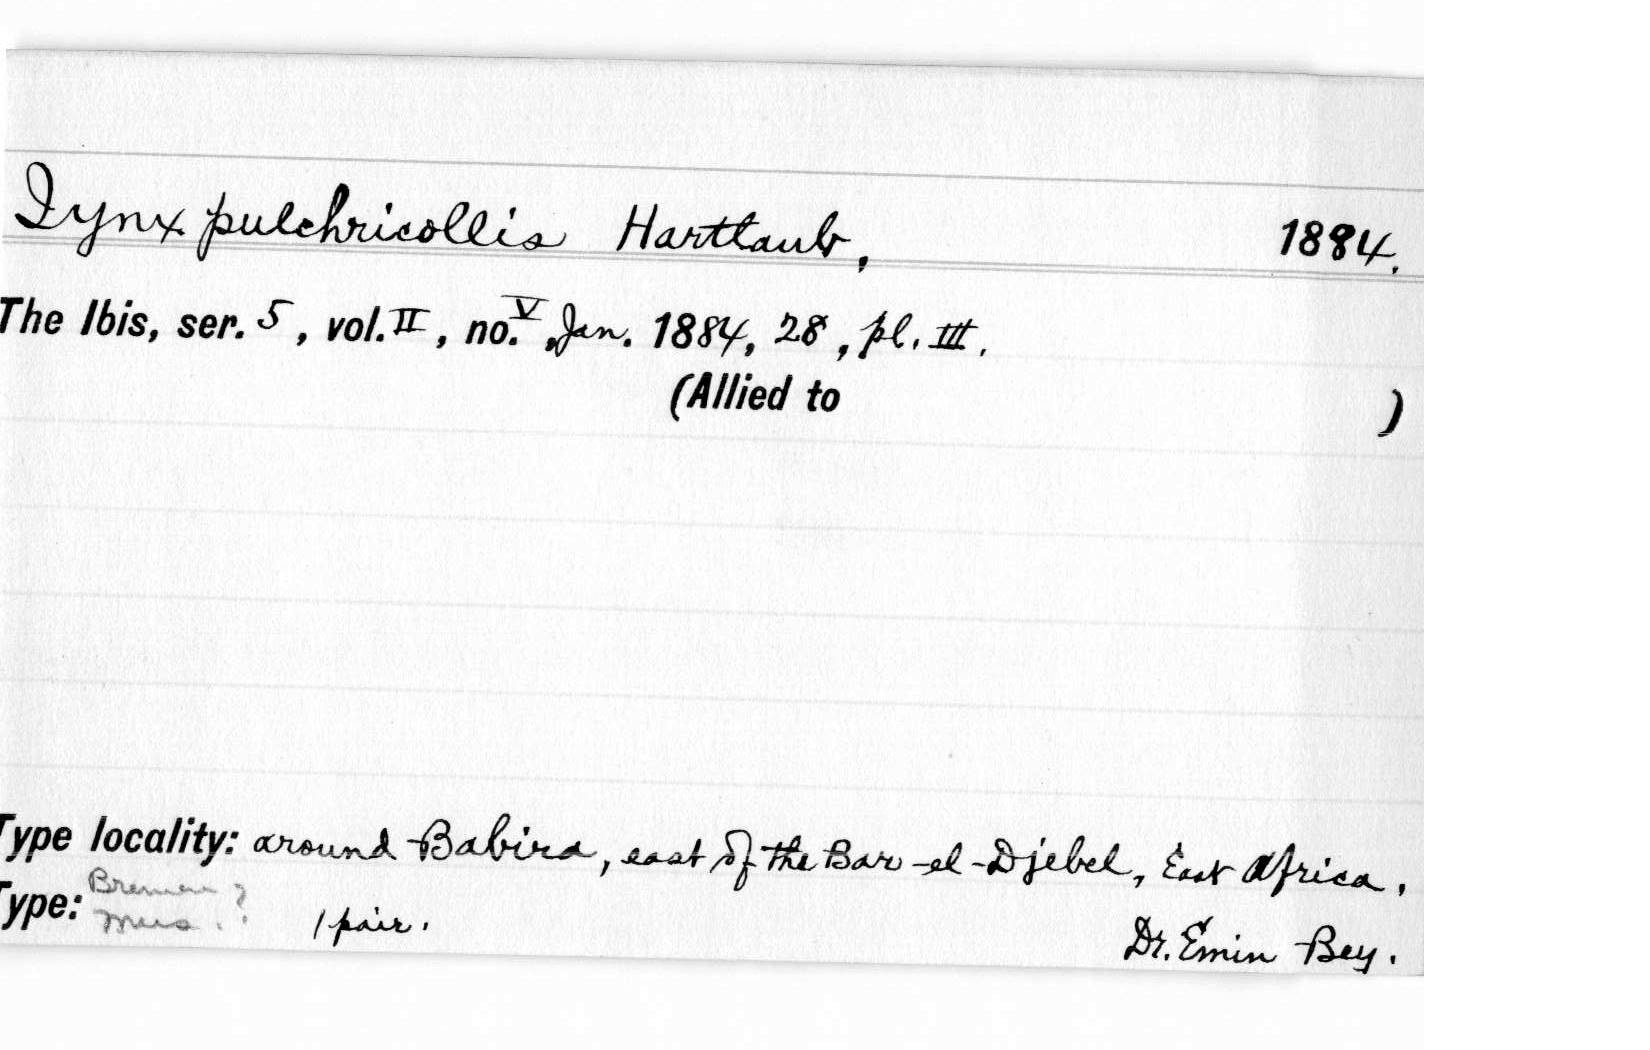 Iynx pulchricollis Hartlaub, 1884.
The Ibis, ser. 5, vol. II, no. V, Jan. 1884, 28, pl. III.
(Allied to )
Type locality: around Babira, east of the Bar-el-Djebel, East Africa.
Type: Bremen Mus. ? 1 pair. Dr. Emin Bey.